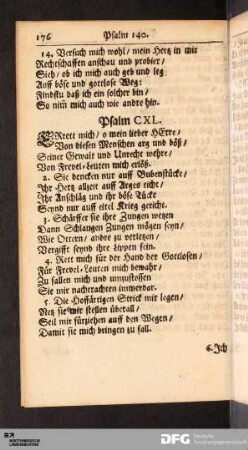 176 Psalm 140.
14. Versuch mich wohl / mein Hertz in mir
Rechtschaffen anschau und probier /
Sieh / ob ich mich auch geb und leg
Auff böse und gottlose Weg:
Findstu daß ich ein solcher bin /
So nim̃ mich auch wie andre hin.
Psalm CXL.
ERrett mich / o mein lieber HErre /
Von diesen Menschen arg und böß /
Seiner Gewalt und Unrecht wehre /
Von Frevel-Leuten mich erlöß.
2. Sie dencken nur auff Bubenstücke /
Ihr Hertz allzeit auff Arges ticht /
Ihr Anschläg und ihr böse Tücke
Seynd nur auff eitel Krieg gericht.
3. Schärffer sie ihre Zungen wetzen
Dann Schlangen Zungen mögen seyn /
Wie Ottern / andre zu verletzen /
Vergifft seynd ihre Lippen fein.
4. Rett mich für der Hand der Gottlosen /
Für Frevel-Leuten mich bewahr /
Zu fällen mich und umzustossen
Sie mir nachtrachten immerdar.
5. Die Hoffärtigen Strick mir legen /
Netz sie mir stellen überall /
Seil mir fürziehen auff den Wegen /
Damit sie mich bringen zu fall.
6. Ich
DFG Deutsche
Forschungsgemeinschaft